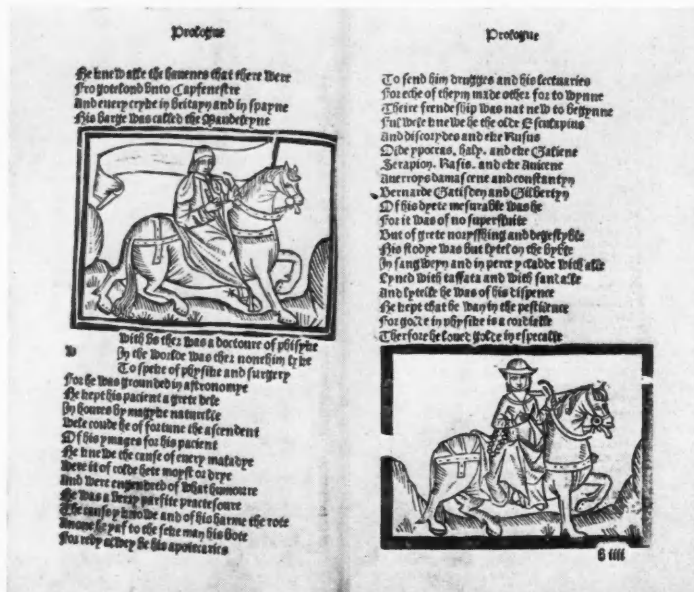 Prologue
He knew alle the havenes that there were
Fro gotelond vnto Capfenestre
And euery cryke in britayn and in spayne
His barge was called the Mawdeleyne
With vs ther was a doctoure of phisyke
In the worlde was ther none him lyke
To speke of phisike and surgery
For he was grounded in astronomye
He kept his pacient a grete dele
In houres by magyke naturelle
Wele coude he of fortune the ascendent
Of his ymages for his pacient
He knewe the cause of euery maladye
Were it of colde hete moyst or drye
And were engendred of what humoure
He was a veray parfite practesoure
The cause y knowe and of his harme the rote
Anone he yaf to the seke man his bote
For redy alwey he his apotecaries
Prologue
To send him drugges and his lectuaries
For eche of theym made other for to wynne
Theire frendeship was nat new to begynne
Ful wele knewe he the olde Esculapius
And discorydes and eke Rufus
Olde ypocras, haly, and eke Galiene
Serapion, Rasis, and eke Auicene
Auerroys damascene and constantyn
Bernarde Gatisden and Gilbertyn
Of his dyete mesurable was he
For it was of no superfluite
But of grete noryshing and degestyble
His stodye was but lytel on the byble
In sangweyn and in perce ycladde with alle
Lyned with taffata and with sandalle
And lytelle he was of his dispence
He kept that he wan in the pestilence
For golde in physike is a cordialle
Therfore he loued golde in especialle
b iiii